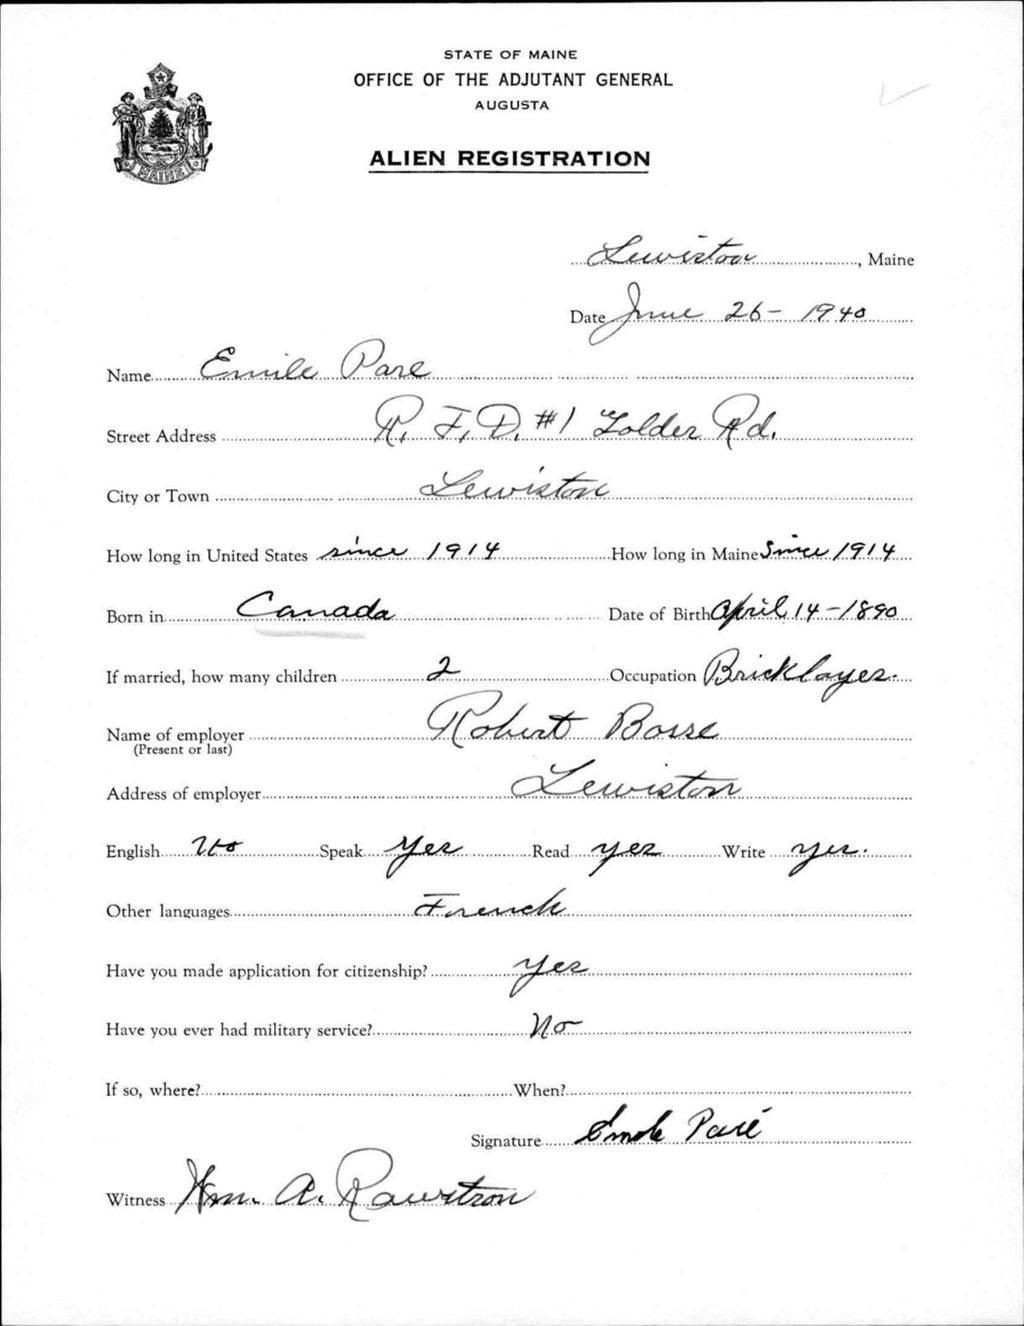 STATE OF MAINE
OFFICE OF THE ADJUTANT GENERAL
AUGUSTA
ALIEN REGISTRATION
MAINE
Lewiston, Maine
Date June 26 - 1940
Name Emile Pare
Street Address R. F. D. #1 Golder Rd.
City or Town Lewiston
How long in United States since 1914 How long in Maine Since 1914
Born in Canada Date of Birth April 14 - 1890
If married, how many children 2 Occupation Bricklayer.
Name of employer Robert Bosse
(Present or last)
Address of employer Lewiston
English No Speak Yes Read yes Write yes.
Other languages French
Have you made application for citizenship? Yes
Have you ever had military service? No
If so, where? When?
Signature Emile Paré
Witness Wm. A. Rawstron